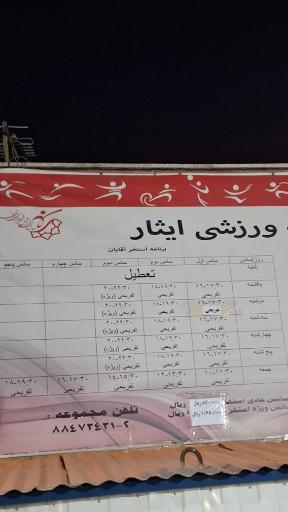 ورزشی ایثار
برنامه استخر آقایان
روز/سانس سانس اول سانس دوم سانس سوم سانس چهارم سانس پنجم
شنبه تعطیل
یکشنبه ۱۶-۱۷:۳۰ ۱۸-۱۹:۳۰ ۲۰-۲۲:۳۰
تفریحی تفریحی تفریحی (ویژه)
دوشنبه ۱۶-۱۷:۳۰ ۱۸-۱۹:۳۰ ۲۰-۲۲:۳۰
تفریحی تفریحی تفریحی (ویژه)
سه شنبه ۱۶-۱۷:۳۰ ۱۸-۱۹:۳۰ ۲۰-۲۲:۳۰
تفریحی تفریحی تفریحی (ویژه)
چهارشنبه ۱۶-۱۷:۳۰ ۱۸-۱۹:۳۰ ۲۰-۲۲:۳۰
تفریحی تفریحی تفریحی (ویژه)
پنج شنبه ۱۶-۱۷:۳۰ ۱۸-۱۹:۳۰ ۲۰-۲۲:۳۰
تفریحی تفریحی تفریحی (ویژه)
جمعه ۱۶-۱۷:۳۰ ۱۸-۱۹:۳۰
تفریحی تفریحی تفریحی تفریحی تفریحی
سانس عادی استخر ریال
سانس ویژه استخر ریال
تلفن مجموعه :
۸۸۴۷۳۴۳۱-۲